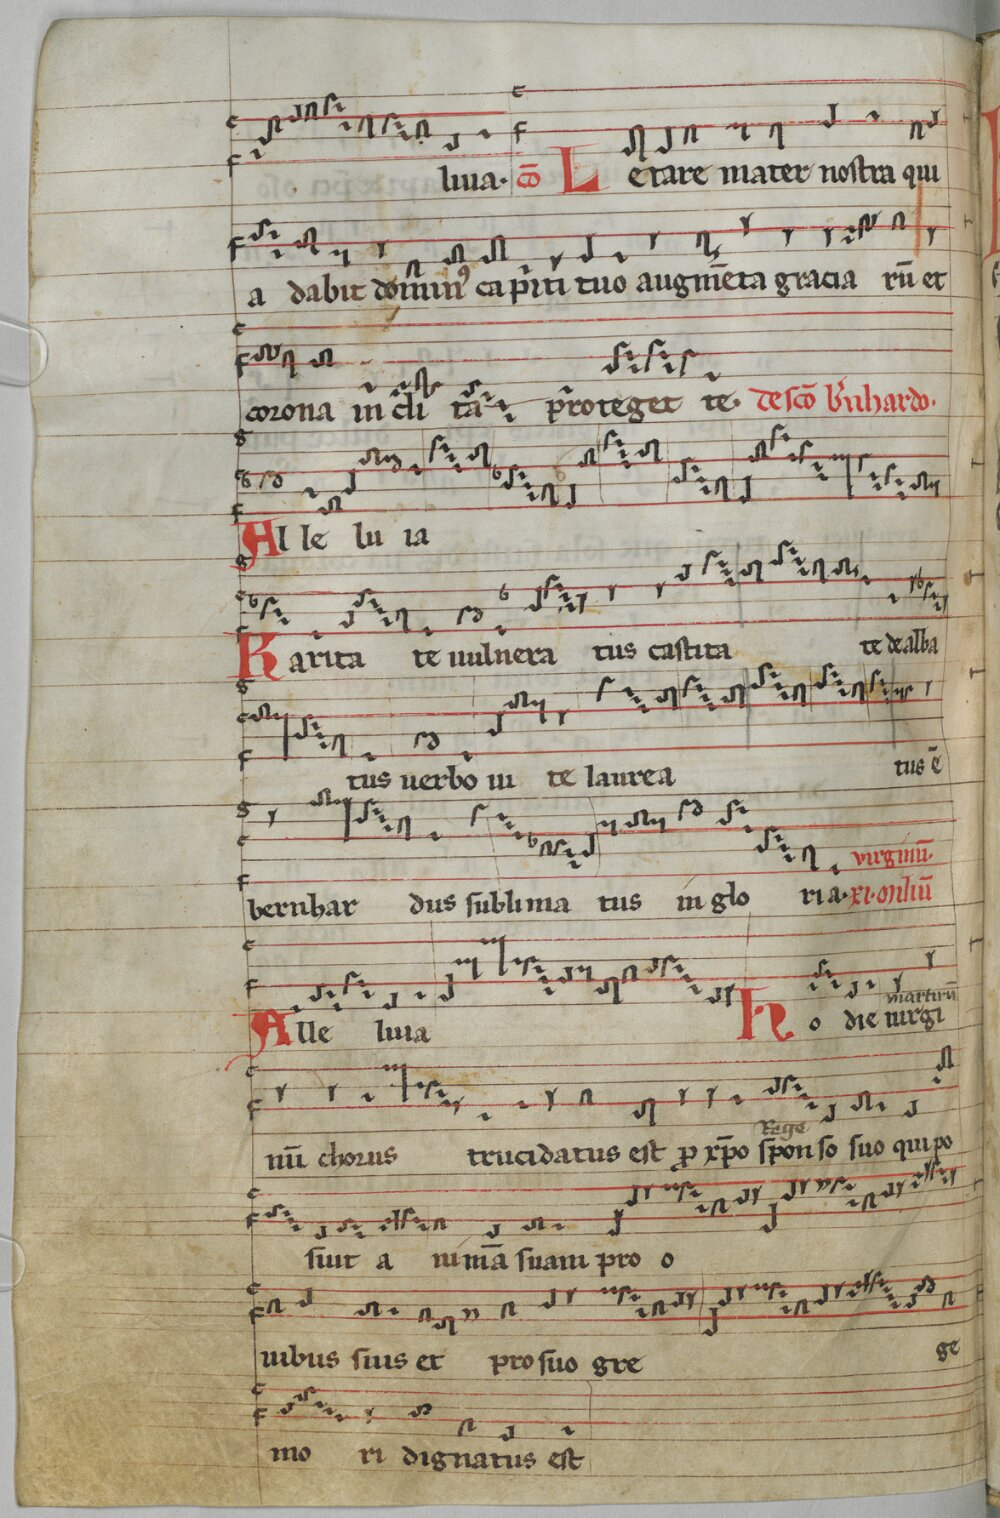 luia. Letare mater nostra qui
a dabit domin⁹ capiti tuo augm̄eta gracia rū et
corona incli ta proteget te. de sco b̄nhardo.
Al le lu ia
Karita te uulnera tus castita te dealba
tus uerbo ui te laurea tus ē
virginū.
bernhar dus sublima tus in glo ria. xi. miliū
martirū
Alle luia Ho die uirgi
nū chorus trucidatus est p xp̄o sponso suo qui po
Rege
suit a nimā suam pro o
uibus suis et pro suo gre ge
mo ri dignatus est